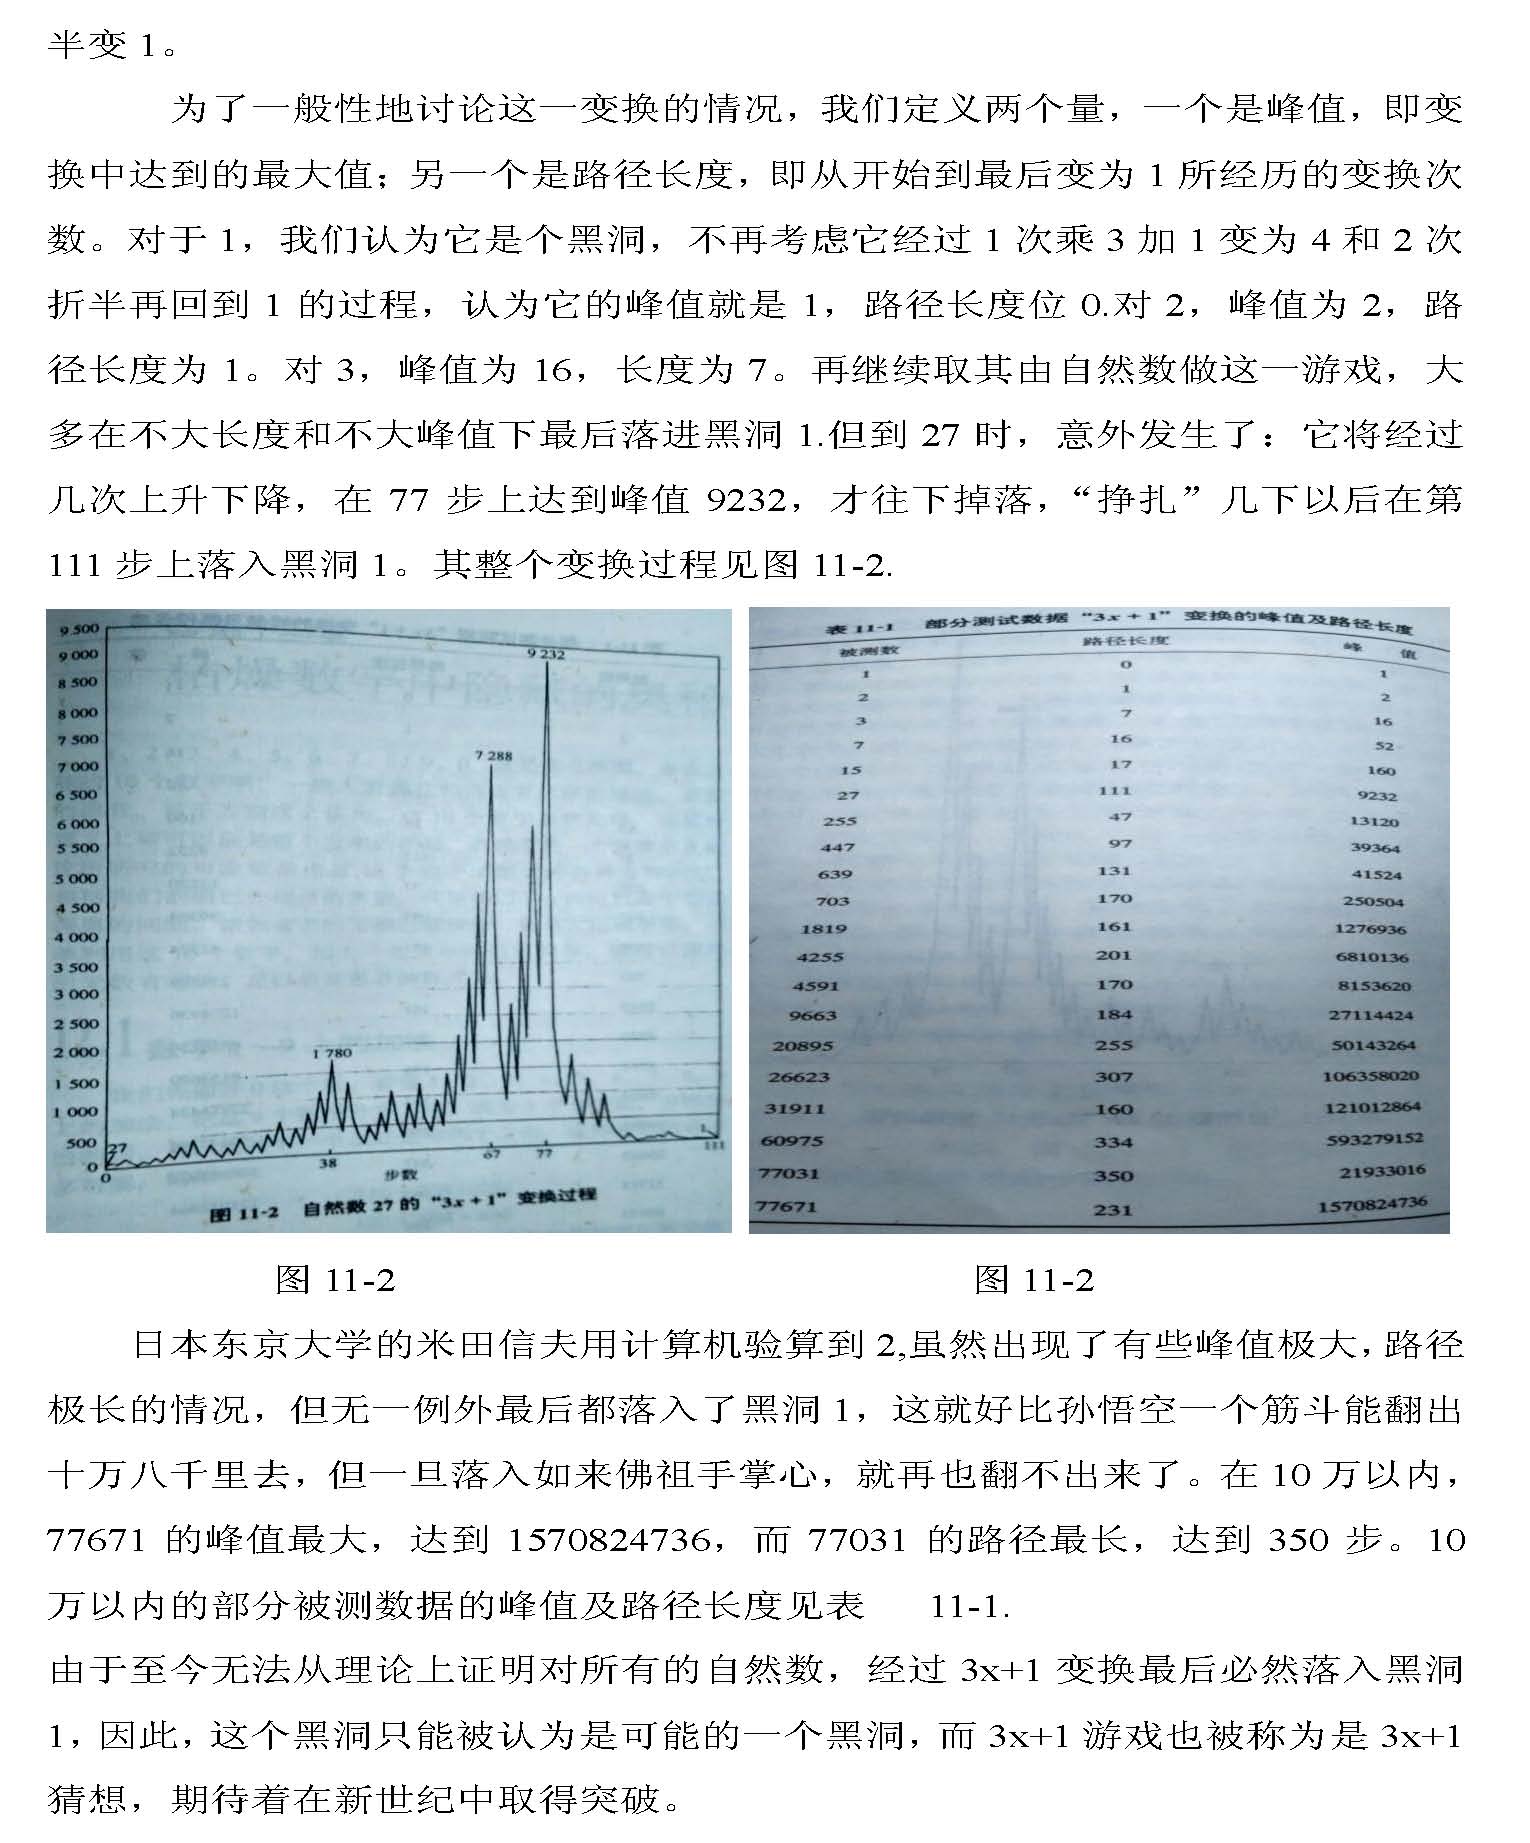 半变 1。
为了一般性地讨论这一变换的情况，我们定义两个量，一个是峰值，即变
换中达到的最大值；另一个是路径长度，即从开始到最后变为 1 所经历的变换次
数。对于 1，我们认为它是个黑洞，不再考虑它经过 1 次乘 3 加 1 变为 4 和 2 次
折半再回到 1 的过程，认为它的峰值就是 1，路径长度位 0.对 2，峰值为 2，路
径长度为 1。对 3，峰值为 16，长度为 7。再继续取其由自然数做这一游戏，大
多在不大长度和不大峰值下最后落进黑洞 1.但到 27 时，意外发生了：它将经过
几次上升下降，在 77 步上达到峰值 9232，才往下掉落，“挣扎”几下以后在第
111 步上落入黑洞 1。其整个变换过程见图 11-2.
9 500
9 000
8 500
8 000
7 500
7 000
6 500
6 000
5 500
5 000
4 500
4 000
3 500
3 000
2 500
2 000
1 500
1 000
500
0
27
1 780
7 288
9 232
1
0
38
67
77
111
步数
图 11-2 自然数 27 的 “3x + 1” 变换过程
表 11-1 部分测试数据 “3x + 1” 变换的峰值及路径长度
被测数 路径长度 峰 值
1 0 1
2 1 2
3 7 16
7 16 52
15 17 160
27 111 9232
255 47 13120
447 97 39364
639 131 41524
703 170 250504
1819 161 1276936
4255 201 6810136
4591 170 8153620
9663 184 27114424
20895 255 50143264
26623 307 106358020
31911 160 121012864
60975 334 593279152
77031 350 21933016
77671 231 1570824736
图 11-2 图 11-2
日本东京大学的米田信夫用计算机验算到 2,虽然出现了有些峰值极大，路径
极长的情况，但无一例外最后都落入了黑洞 1，这就好比孙悟空一个筋斗能翻出
十万八千里去，但一旦落入如来佛祖手掌心，就再也翻不出来了。在 10 万以内，
77671 的峰值最大，达到 1570824736，而 77031 的路径最长，达到 350 步。10
万以内的部分被测数据的峰值及路径长度见表 11-1.
由于至今无法从理论上证明对所有的自然数，经过 3x+1 变换最后必然落入黑洞
1，因此，这个黑洞只能被认为是可能的一个黑洞，而 3x+1 游戏也被称为是 3x+1
猜想，期待着在新世纪中取得突破。